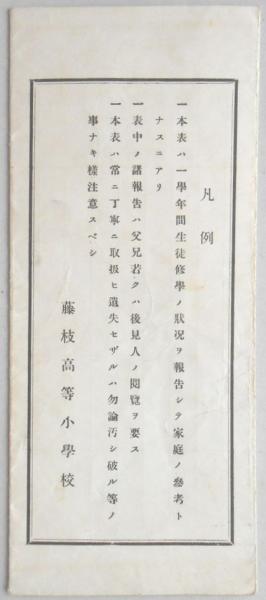 凡例
一本表ハ一學年間生徒修學ノ狀況ヲ報告シテ家庭ノ參考ト
ナスニアリ
一表中ノ諸報告ハ父兄若クハ後見人ノ閱覽ヲ要ス
一本表ハ常ニ丁寧ニ取扱ヒ遺失セザルハ勿論汚シ破ル等ノ
事ナキ樣注意スベシ
藤枝高等小學校